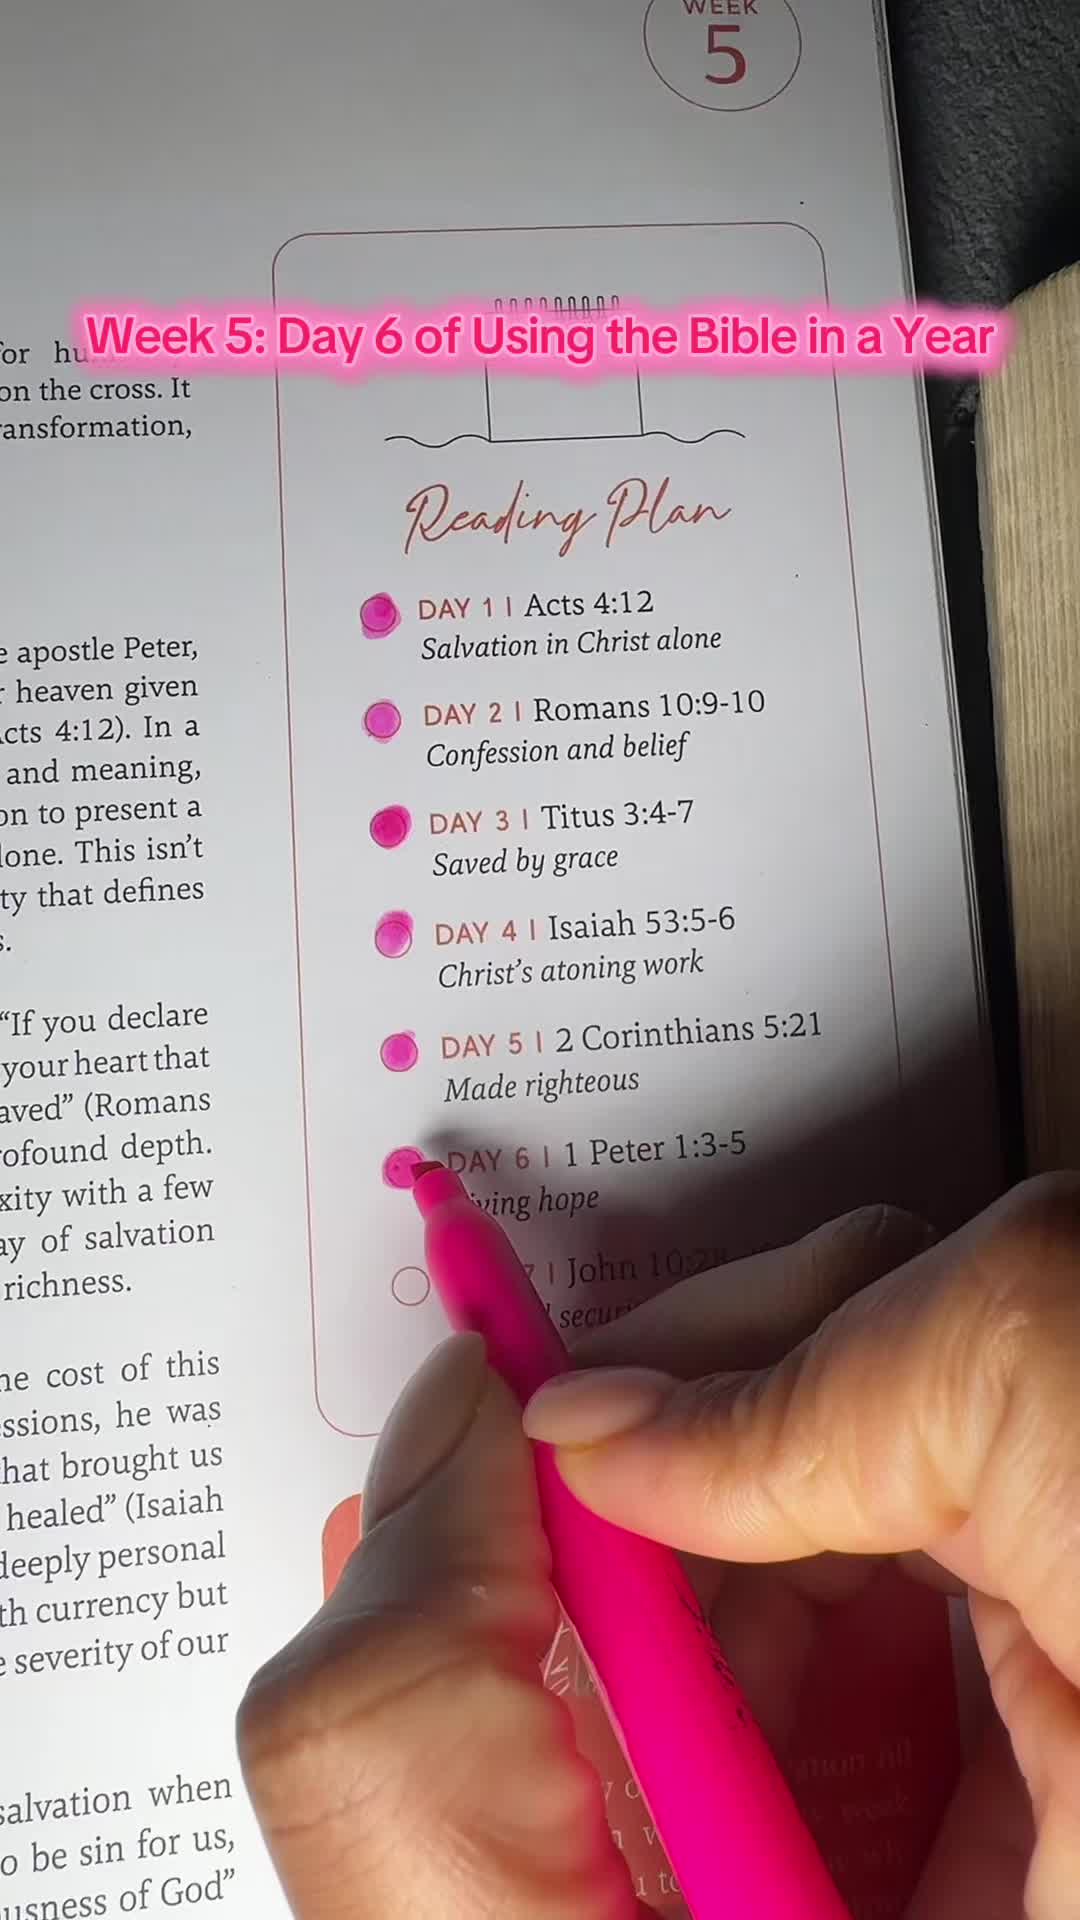 WEEK
5
Week 5: Day 6 of Using the Bible in a Year
on the cross. It
apostle Peter,
heaven given
4:12). In a
and meaning,
to present a
This isn't
that defines
"If you declare
your heart that
(Romans
depth.
with a few
of salvation
richness.
cost of this
he was
that brought us
healed" (Isaiah
deeply personal
currency but
severity of our
salvation when
be sin for us,
of God"
Reading Plan
DAY 1 | Acts 4:12
Salvation in Christ alone
DAY 2 | Romans 10:9-10
Confession and belief
DAY 3 | Titus 3:4-7
Saved by grace
DAY 4 | Isaiah 53:5-6
Christ's atoning work
DAY 5 | 2 Corinthians 5:21
Made righteous
DAY 6 | 1 Peter 1:3-5
hope
| John